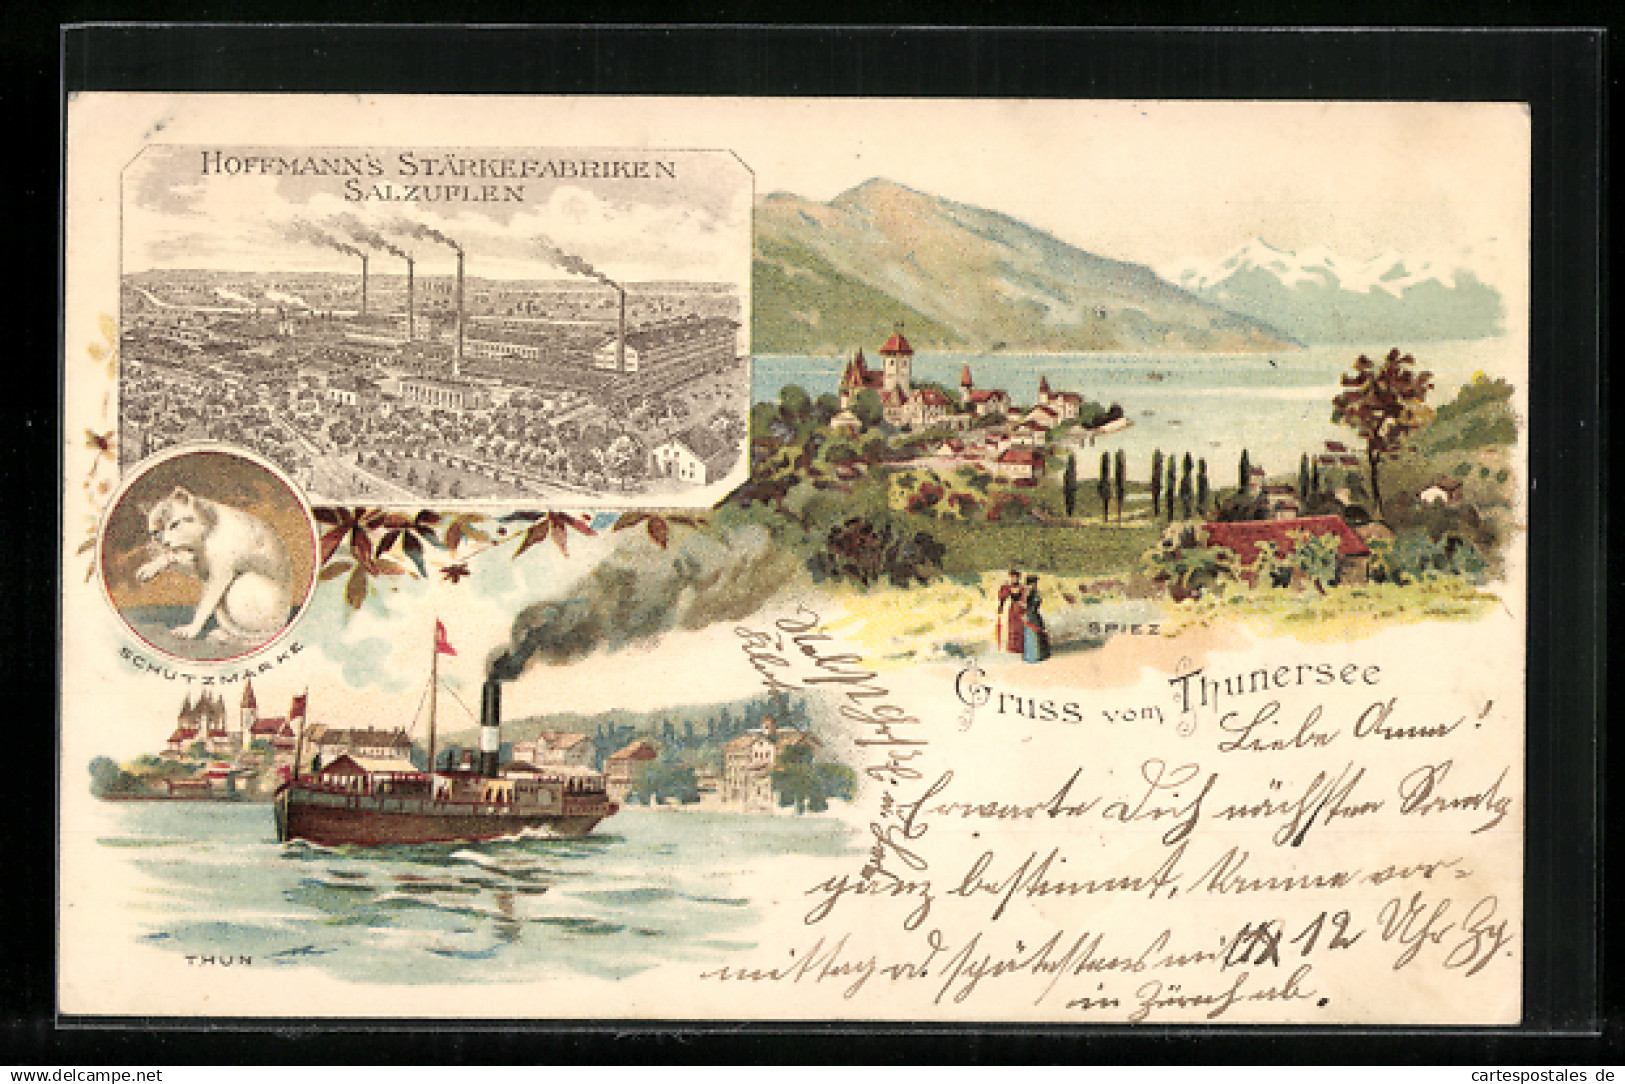 HOFFMANN'S STÄRKEFABRIKEN
SALZUFLEN
SCHUTZMARKE
SPIEZ
Gruss vom Thunersee
THUN
Liebe Anna!
Erwarte Dich nächsten
ganz bestimmt, komme vor-
mittag od. spätestens mit 12 Uhr Zg.
in Zürich ab.
cartespostales de